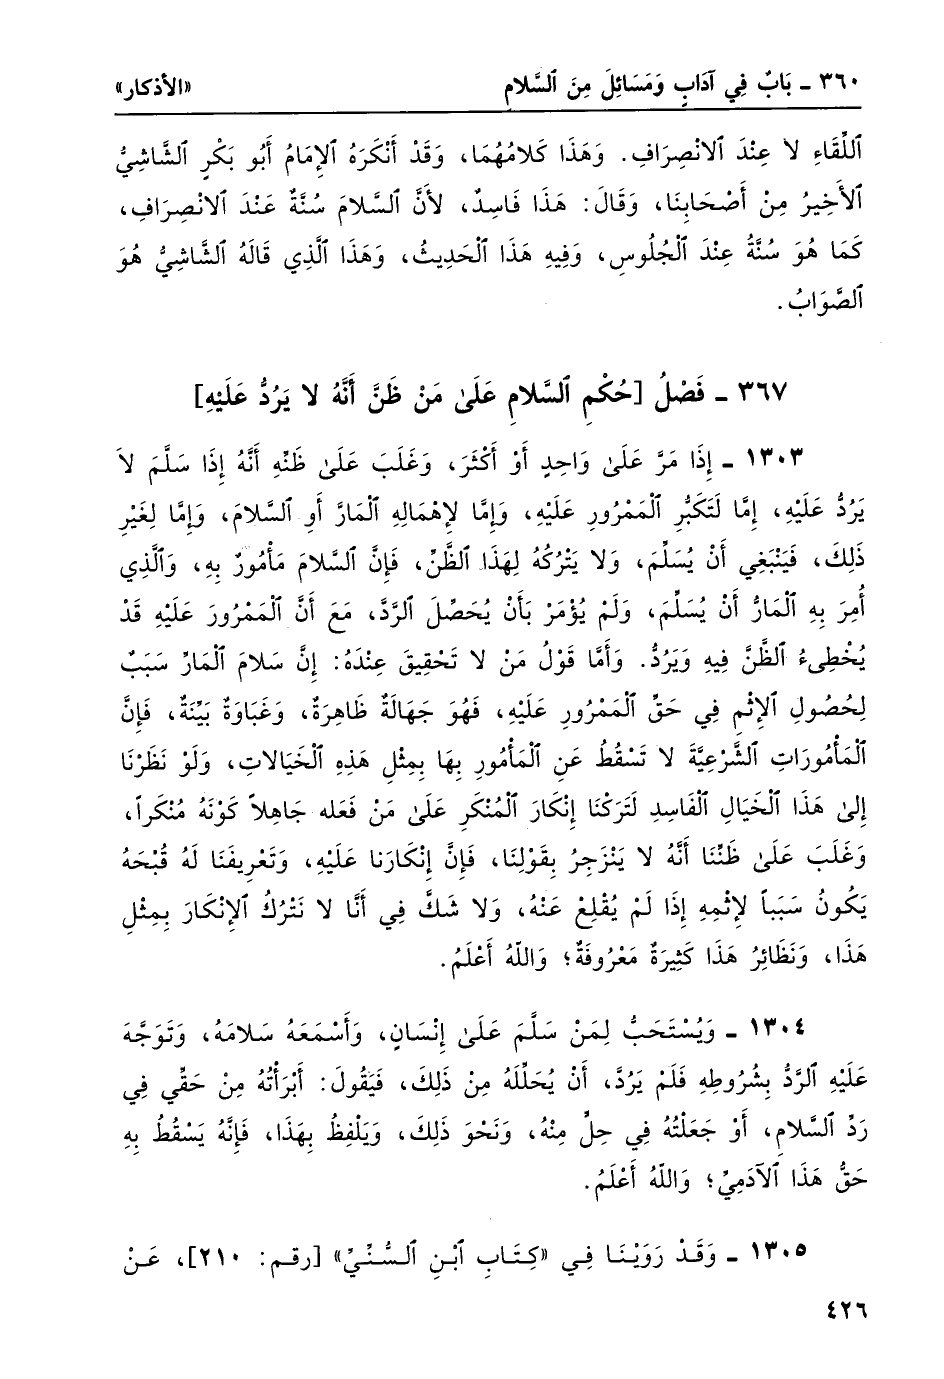 ٣٦٠ ـ بَابٌ فِي آدَابٍ وَمَسَائِلَ مِنَ ٱلسَّلامِ «الأذكار»
ٱللِّقَاءِ لا عِنْدَ ٱلانْصِرَافِ. وَهَذَا كَلامُهُمَا، وَقَدْ أَنْكَرَهُ ٱلإِمَامُ أَبُو بَكْرٍ ٱلشَّاشِيُّ
ٱلأَخِيرُ مِنْ أَصْحَابِنَا، وَقَالَ: هَذَا فَاسِدٌ، لأَنَّ ٱلسَّلامَ سُنَّةٌ عِنْدَ ٱلانْصِرَافِ،
كَمَا هُوَ سُنَّةٌ عِنْدَ ٱلْجُلُوسِ، وَفِيهِ هَذَا ٱلْحَدِيثُ، وَهَذَا ٱلَّذِي قَالَهُ ٱلشَّاشِيُّ هُوَ
ٱلصَّوَابُ.
٣٦٧ ـ فَصْلُ [حُكْمِ ٱلسَّلامِ عَلَىٰ مَنْ ظَنَّ أَنَّهُ لا يَرُدُّ عَلَيْهِ]
١٣٠٣ ـ إِذَا مَرَّ عَلَىٰ وَاحِدٍ أَوْ أَكْثَرَ، وَغَلَبَ عَلَىٰ ظَنِّهِ أَنَّهُ إِذَا سَلَّمَ لاَ
يَرُدُّ عَلَيْهِ، إِمَّا لَتَكَبُّرِ ٱلْمَمْرُورِ عَلَيْهِ، وَإِمَّا لإِهْمَالِهِ ٱلْمَارَّ أَوِ ٱلسَّلامَ، وَإِمَّا لِغَيْرِ
ذَلِكَ، فَيَنْبَغِي أَنْ يُسَلِّمَ، وَلا يَتْرُكَهُ لِهَذَا ٱلظَّنِّ، فَإِنَّ ٱلسَّلامَ مَأْمُورٌ بِهِ، وَٱلَّذِي
أُمِرَ بِهِ ٱلْمَارُّ أَنْ يُسَلِّمَ، وَلَمْ يُؤْمَرْ بَأَنْ يُحَصِّلَ ٱلرَّدَّ، مَعَ أَنَّ ٱلْمَمْرُورَ عَلَيْهِ قَدْ
يُخْطِىءُ ٱلظَّنَّ فِيهِ وَيَرُدُّ. وَأَمَّا قَوْلُ مَنْ لا تَحْقِيقَ عِنْدَهُ: إِنَّ سَلامَ ٱلْمَارِّ سَبَبٌ
لِحُصُولِ ٱلإِثْمِ فِي حَقِّ ٱلْمَمْرُورِ عَلَيْهِ، فَهُوَ جَهَالَةٌ ظَاهِرَةٌ، وَغَبَاوَةٌ بَيِّنَةٌ، فَإِنَّ
ٱلْمَأْمُورَاتِ ٱلشَّرْعِيَّةَ لا تَسْقُطُ عَنِ ٱلْمَأْمُورِ بِهَا بِمِثْلِ هَذِهِ ٱلْخَيَالاتِ، وَلَوْ نَظَرْنَا
إِلىٰ هَذَا ٱلْخَيَالِ ٱلْفَاسِدِ لَتَرَكْنَا إِنْكَارَ ٱلْمُنْكَرِ عَلَىٰ مَنْ فَعَله جَاهِلاً كَوْنَهُ مُنْكَراً،
وَغَلَبَ عَلَىٰ ظَنِّنَا أَنَّهُ لا يَنْزَجِرُ بِقَوْلِنَا، فَإِنَّ إِنْكَارَنا عَلَيْهِ، وَتَعْرِيفَنَا لَهُ قُبْحَهُ
يَكُونُ سَبَباً لإِثْمِهِ إِذَا لَمْ يُقْلِعْ عَنْهُ، وَلا شَكَّ فِي أَنَّا لا نَتْرُكُ ٱلإِنْكَارَ بِمِثْلِ
هَذَا، وَنَظَائِرُ هَذَا كَثِيرَةٌ مَعْرُوفَةٌ؛ وَاللّهُ أَعْلَمُ.
١٣٠٤ ـ وَيُسْتَحَبُّ لِمَنْ سَلَّمَ عَلَىٰ إِنْسَانٍ، وَأَسْمَعَهُ سَلامَهُ، وَتَوَجَّهَ
عَلَيْهِ ٱلرَّدُّ بِشُرُوطِهِ فَلَمْ يَرُدَّ، أَنْ يُحَلِّلَهُ مِنْ ذَلِكَ، فَيَقُولَ: أَبْرَأْتُهُ مِنْ حَقِّي فِي
رَدِّ ٱلسَّلامِ، أَوْ جَعَلْتُهُ فِي حِلٍّ مِنْهُ، وَنَحْوَ ذَلِكَ، وَيَلْفِظُ بِهَذَا، فَإِنَّهُ يَسْقُطُ بِهِ
حَقُّ هَذَا ٱلآدَمِيِّ؛ وَاللّهُ أَعْلَمُ.
١٣٠٥ ـ وَقَدْ رَوَيْنَا فِي «كِتَابِ ٱبْنِ ٱلسُّنِّيِّ» [رقم: ٢١٠]، عَنْ
٤٢٦